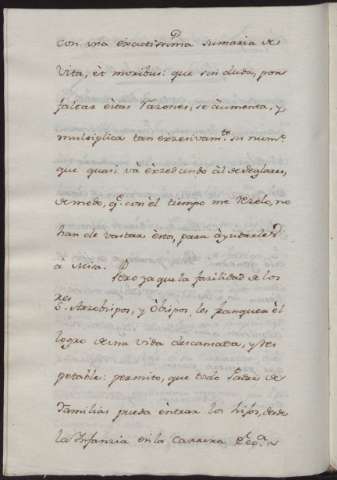 con una exactissima sumaria de
Vita, èt moribus: que sin duda, por
faltar èstas razones, se àumenta, y
multiplica tan excesivam.te su num.o
que quasi và excediendo àl de seglares,
de modo, q.e con èl tiempo me rezelo, no
han de vastar èstos, para àyudarles
à Misa. Pero ya que la facilidad de los
S.res Arzobispos, y Òbispos, les franquea èl
logro de una vida descansada, y res
petable: permito, que todo Padre de
Familias pueda èntrar los hijos, desde
la Infanzia èn la Carrera